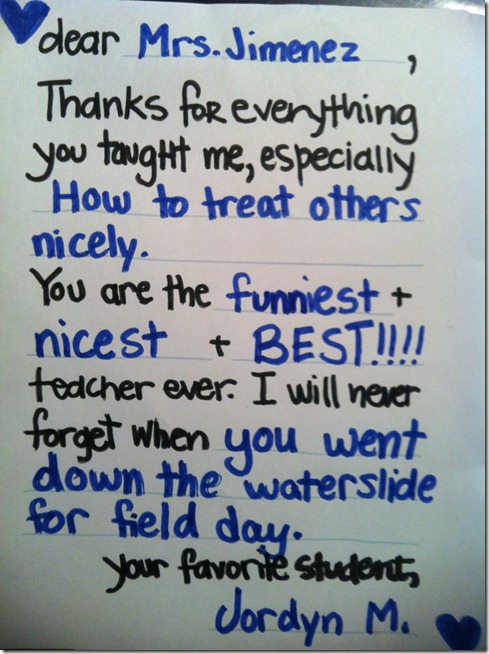 dear Mrs. Jimenez ,
Thanks for everything
you taught me, especially
How to treat others
nicely.
You are the funniest +
nicest + BEST!!!!
teacher ever. I will never
forget when you went
down the waterslide
for field day.
your favorite student,
Jordyn M.